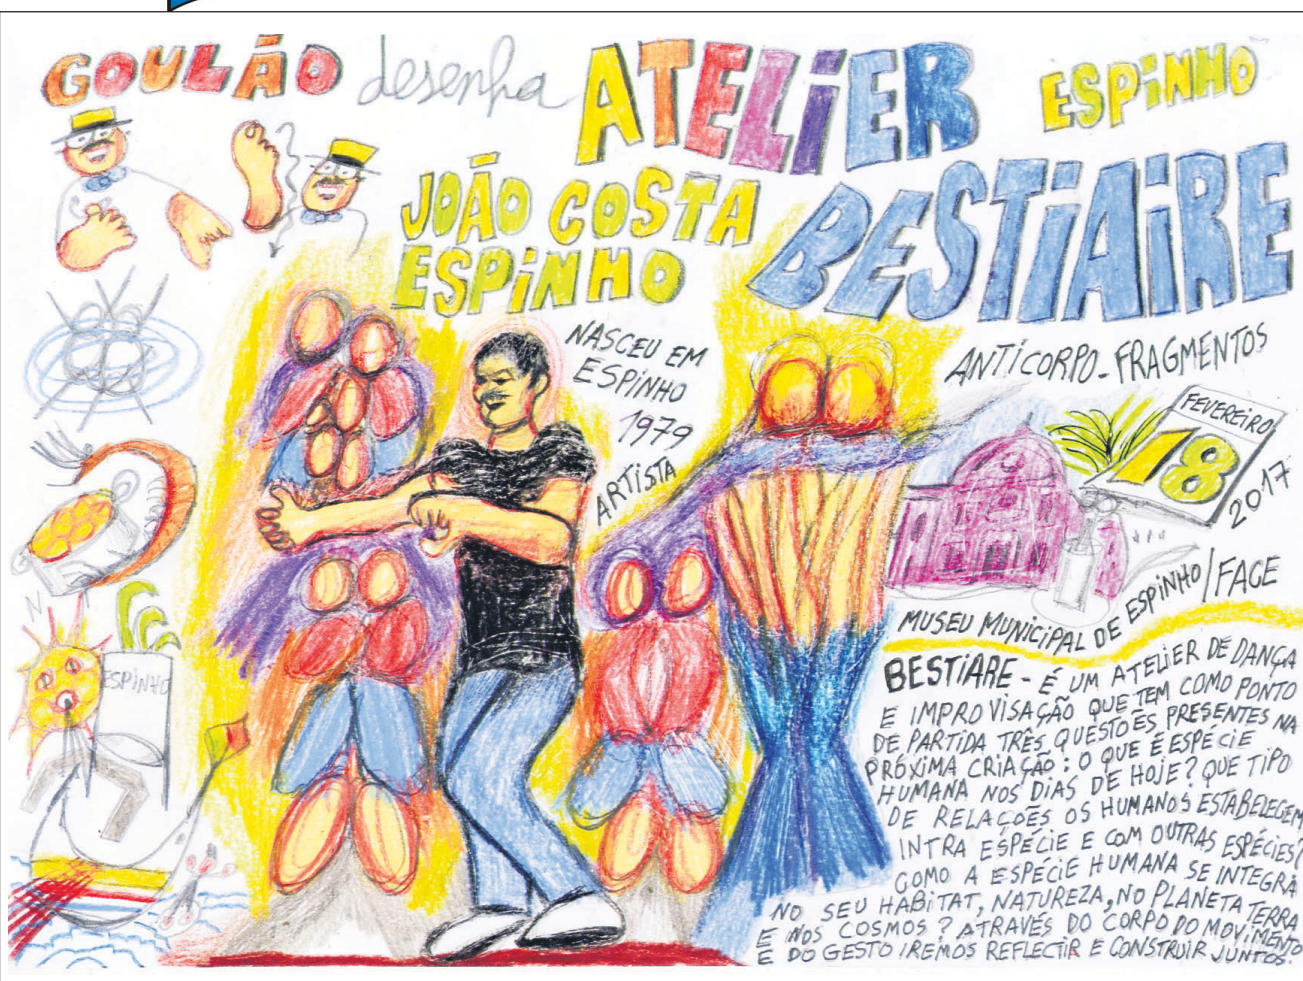 GOULÃO desenha ATELiER ESPiNHO
BESTiAiRE
JOÃO COSTA
ESPiNHO
NASCEU EM
ESPINHO
1979
ARTISTA
ANTICORPO - FRAGMENTOS
FEVEREIRO
18
2017
MUSEU MUNICIPAL DE ESPINHO / FACE
ESPINHO
N
BESTIARE - É UM ATELIER DE DANÇA
E IMPROVISAÇÃO QUE TEM COMO PONTO
DE PARTIDA TRÊS QUESTOES PRESENTES NA
PRÓXIMA CRIAÇÃO: O QUE É ESPÉCIE
HUMANA NOS DIAS DE HOJE? QUE TIPO
DE RELAÇÕES OS HUMANOS ESTABELECEM
INTRA ESPÉCIE E COM OUTRAS ESPÉCIES?
COMO A ESPÉCIE HUMANA SE INTEGRA
NO SEU HABITAT, NATUREZA, NO PLANETA TERRA
E NOS COSMOS? ATRAVÉS DO CORPO DO MOVIMENTO
E DO GESTO IREMOS REFLECTIR E CONSTRUIR JUNTOS.